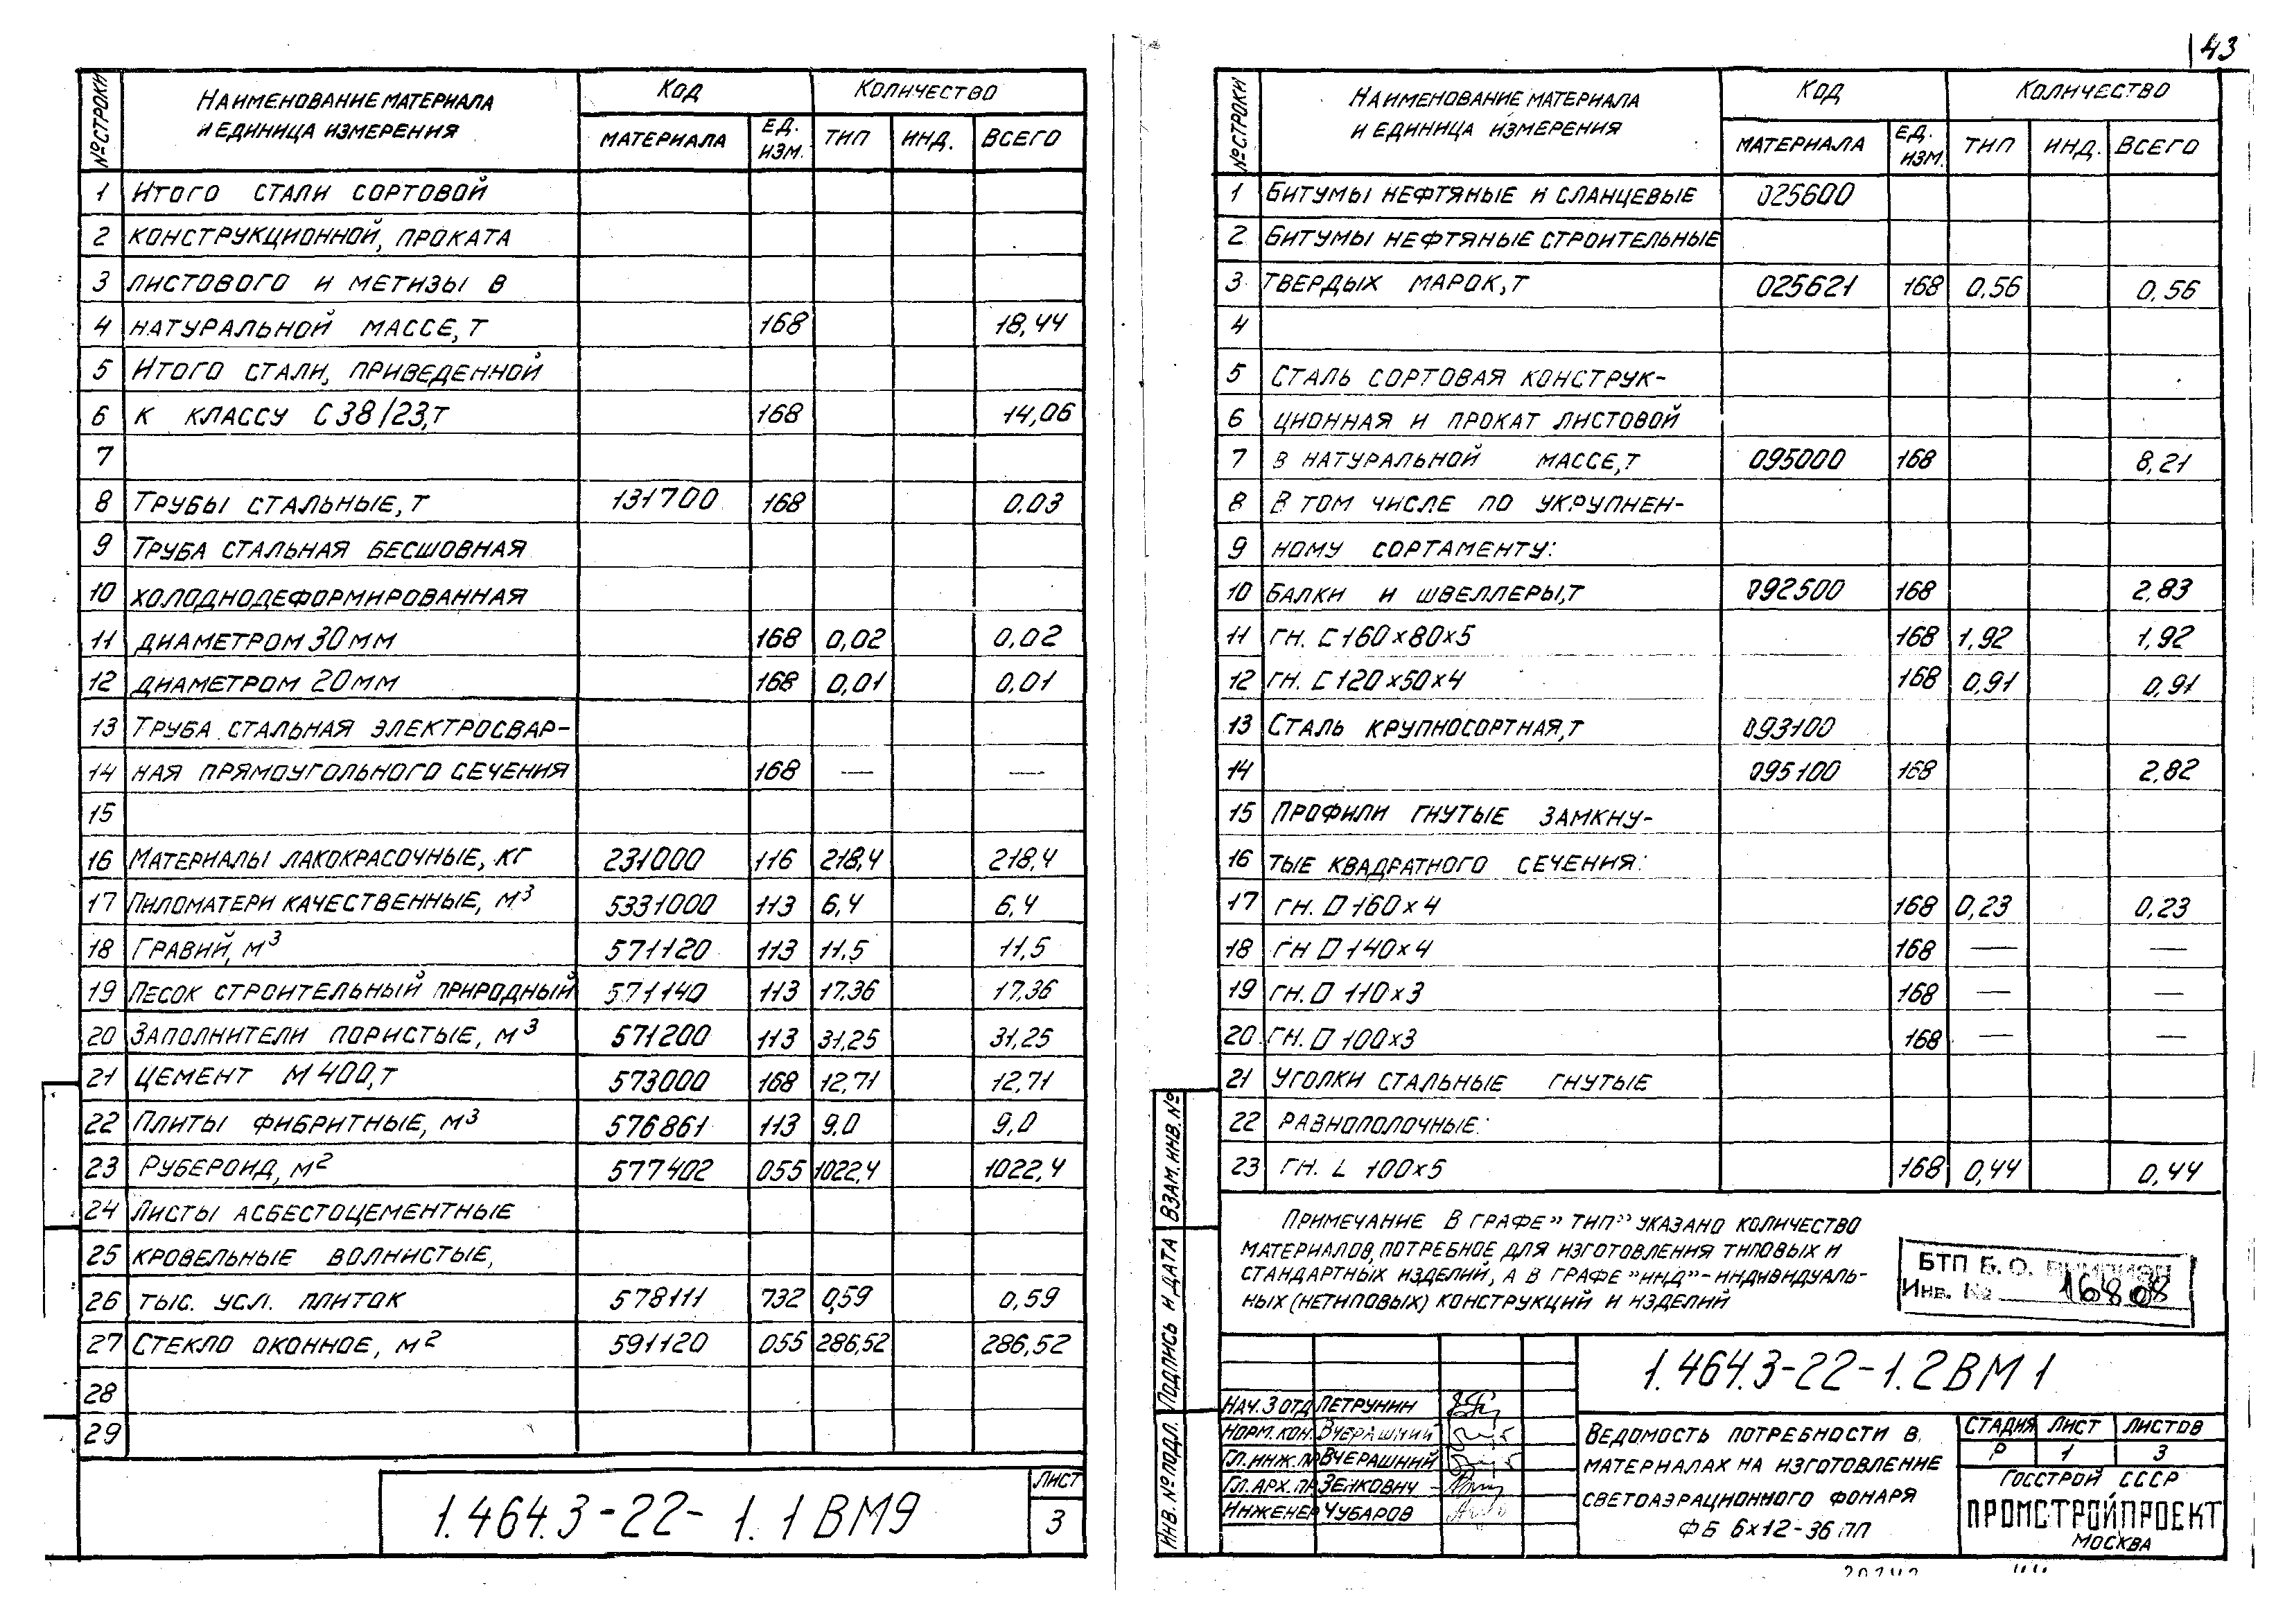 43
№ СТРОКИ НАИМЕНОВАНИЕ МАТЕРИАЛА И ЕДИНИЦА ИЗМЕРЕНИЯ КОД КОЛИЧЕСТВО
МАТЕРИАЛА ЕД. ИЗМ. ТИП ИНД. ВСЕГО
1 ИТОГО СТАЛИ СОРТОВОЙ
2 КОНСТРУКЦИОННОЙ, ПРОКАТА
3 ЛИСТОВОГО И МЕТИЗЫ В
4 НАТУРАЛЬНОЙ МАССЕ, Т 168 18,44
5 ИТОГО СТАЛИ, ПРИВЕДЕННОЙ
6 К КЛАССУ С38/23, Т 168 14,06
7
8 ТРУБЫ СТАЛЬНЫЕ, Т 131700 168 0.03
9 ТРУБА СТАЛЬНАЯ БЕСШОВНАЯ
10 ХОЛОДНОДЕФОРМИРОВАННАЯ
11 ДИАМЕТРОМ 30 ММ 168 0,02 0,02
12 ДИАМЕТРОМ 20 ММ 168 0,01 0,01
13 ТРУБА СТАЛЬНАЯ ЭЛЕКТРОСВАР-
14 НАЯ ПРЯМОУГОЛЬНОГО СЕЧЕНИЯ 168 — —
15
16 МАТЕРИАЛЫ ЛАКОКРАСОЧНЫЕ, КГ 231000 116 218,4 218,4
17 ПИЛОМАТЕРИ КАЧЕСТВЕННЫЕ, М³ 5331000 113 6,4 6,4
18 ГРАВИЙ, М³ 571120 113 11,5 11,5
19 ПЕСОК СТРОИТЕЛЬНЫЙ ПРИРОДНЫЙ 571140 113 17.36 17,36
20 ЗАПОЛНИТЕЛИ ПОРИСТЫЕ, М³ 571200 113 31,25 31,25
21 ЦЕМЕНТ М400, Т 573000 168 12,71 12,71
22 ПЛИТЫ ФИБРИТНЫЕ, М³ 576861 113 9.0 9,0
23 РУБЕРОИД, М² 577402 055 1022,4 1022,4
24 ЛИСТЫ АСБЕСТОЦЕМЕНТНЫЕ
25 КРОВЕЛЬНЫЕ ВОЛНИСТЫЕ,
26 ТЫС. УСЛ. ПЛИТОК 578111 732 0,59 0,59
27 СТЕКЛО ОКОННОЕ, М² 591120 055 286,52 286,52
28
29
1.464.3-22-1.1 ВМ9
ЛИСТ
3
№ СТРОКИ НАИМЕНОВАНИЕ МАТЕРИАЛА И ЕДИНИЦА ИЗМЕРЕНИЯ КОД КОЛИЧЕСТВО
МАТЕРИАЛА ЕД. ИЗМ. ТИП ИНД. ВСЕГО
1 БИТУМЫ НЕФТЯНЫЕ И СЛАНЦЕВЫЕ 025600
2 БИТУМЫ НЕФТЯНЫЕ СТРОИТЕЛЬНЫЕ
3 ТВЕРДЫХ МАРОК, Т 025621 168 0,56 0,56
4
5 СТАЛЬ СОРТОВАЯ КОНСТРУК-
6 ЦИОННАЯ И ПРОКАТ ЛИСТОВОЙ
7 В НАТУРАЛЬНОЙ МАССЕ, Т 095000 168 8,21
8 В ТОМ ЧИСЛЕ ПО УКРУПНЕН-
9 НОМУ СОРТАМЕНТУ:
10 БАЛКИ И ШВЕЛЛЕРЫ, Т 092500 168 2,83
11 ГН. [ 160×80×5 168 1,92 1,92
12 ГН. [ 120×50×4 168 0,91 0,91
13 СТАЛЬ КРУПНОСОРТНАЯ, Т 093100
14 095100 168 2,82
15 ПРОФИЛИ ГНУТЫЕ ЗАМКНУ-
16 ТЫЕ КВАДРАТНОГО СЕЧЕНИЯ:
17 ГН. □ 160×4 168 0,23 0,23
18 ГН □ 140×4 168 — —
19 ГН. □ 110×3 168 — —
20 ГН. □ 100×3 168 — —
21 УГОЛКИ СТАЛЬНЫЕ ГНУТЫЕ
22 РАВНОПОЛОЧНЫЕ:
23 ГН. L 100×5 168 0,44 0,44
ПРИМЕЧАНИЕ В ГРАФЕ "ТИП" УКАЗАНО КОЛИЧЕСТВО
МАТЕРИАЛОВ, ПОТРЕБНОЕ ДЛЯ ИЗГОТОВЛЕНИЯ ТИПОВЫХ И
СТАНДАРТНЫХ ИЗДЕЛИЙ, А В ГРАФЕ "ИНД"-ИНДИВИДУАЛЬ-
НЫХ (НЕТИПОВЫХ) КОНСТРУКЦИЙ И ИЗДЕЛИЙ
БТП Б. О.
Инв. № 16808
ВЗАМ. ИНВ. №
ПОДПИСЬ И ДАТА
ИНВ. № ПОДЛ.
НАЧ. З ОТД ПЕТРУНИН
НОРМ. КОН. ВЧЕРАШНИЙ
ГЛ. ИНЖ. ПР ВЧЕРАШНИЙ
ГЛ. АРХ. ПР ЗЕНКОВИЧ
ИНЖЕНЕР ЧУБАРОВ
1.464.3-22-1.2 ВМ1
ВЕДОМОСТЬ ПОТРЕБНОСТИ В
МАТЕРИАЛАХ НА ИЗГОТОВЛЕНИЕ
СВЕТОАЭРАЦИОННОГО ФОНАРЯ
ФБ 6×12-36 ПП
СТАДИЯ ЛИСТ ЛИСТОВ
Р 1 3
ГОССТРОЙ СССР
ПРОМСТРОЙПРОЕКТ
МОСКВА